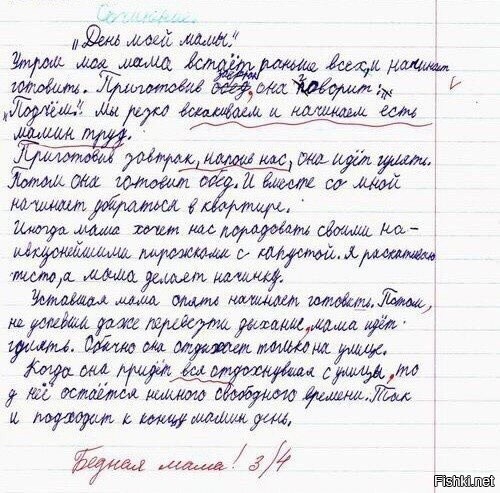 Сочинение.
„День моей мамы."
Утром моя мама встаёт раньше всех, и начинает
завтрак
готовить. Приготовив обед, она говорит:
„Подъём". Мы резко вскакиваем и начинаем есть
мамин труд.
Приготовив завтрак, напоив нас, она идёт гулять.
Потом она готовит обед. И вместе со мной
начинает убираться в квартире.
Иногда мама хочет нас порадовать своими на-
ивкуснейшими пирожками с капустой. Я раскатываю
тесто, а мама делает начинку.
Уставшая мама опять начинает готовить. Потом,
не успевши даже перевезти дыхание, мама идёт
гулять. Обычно она отдыхает только на улице.
Когда она придёт вся отдохнувшая с улицы, то
у неё остаётся немного свободного времени. Так
и подходит к концу мамин день.
Бедная мама! 3/4
Fishki.net